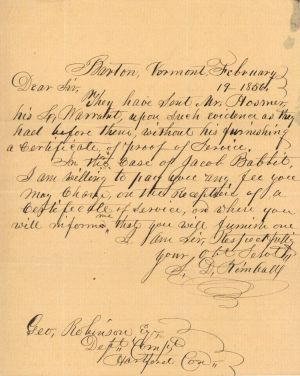 Barton, Vermont, February
19 1856.
Dear Sir,
They have sent Mr. Hosmer,
his Warrant, upon such evidence as they
had before them, without his furnishing
a Certificate, of proof of Service.
In the Case of Jacob Babbit,
I am willing to pay you any fee you
may Charge, on the Reception of a
Certificate of Service, or when you
will inform me that you will furnish one
I am Sir, Respectfully
your Obt Servt
D. Kimball
Geo, Robinson Esqr
Dept Compt
Hartford Con